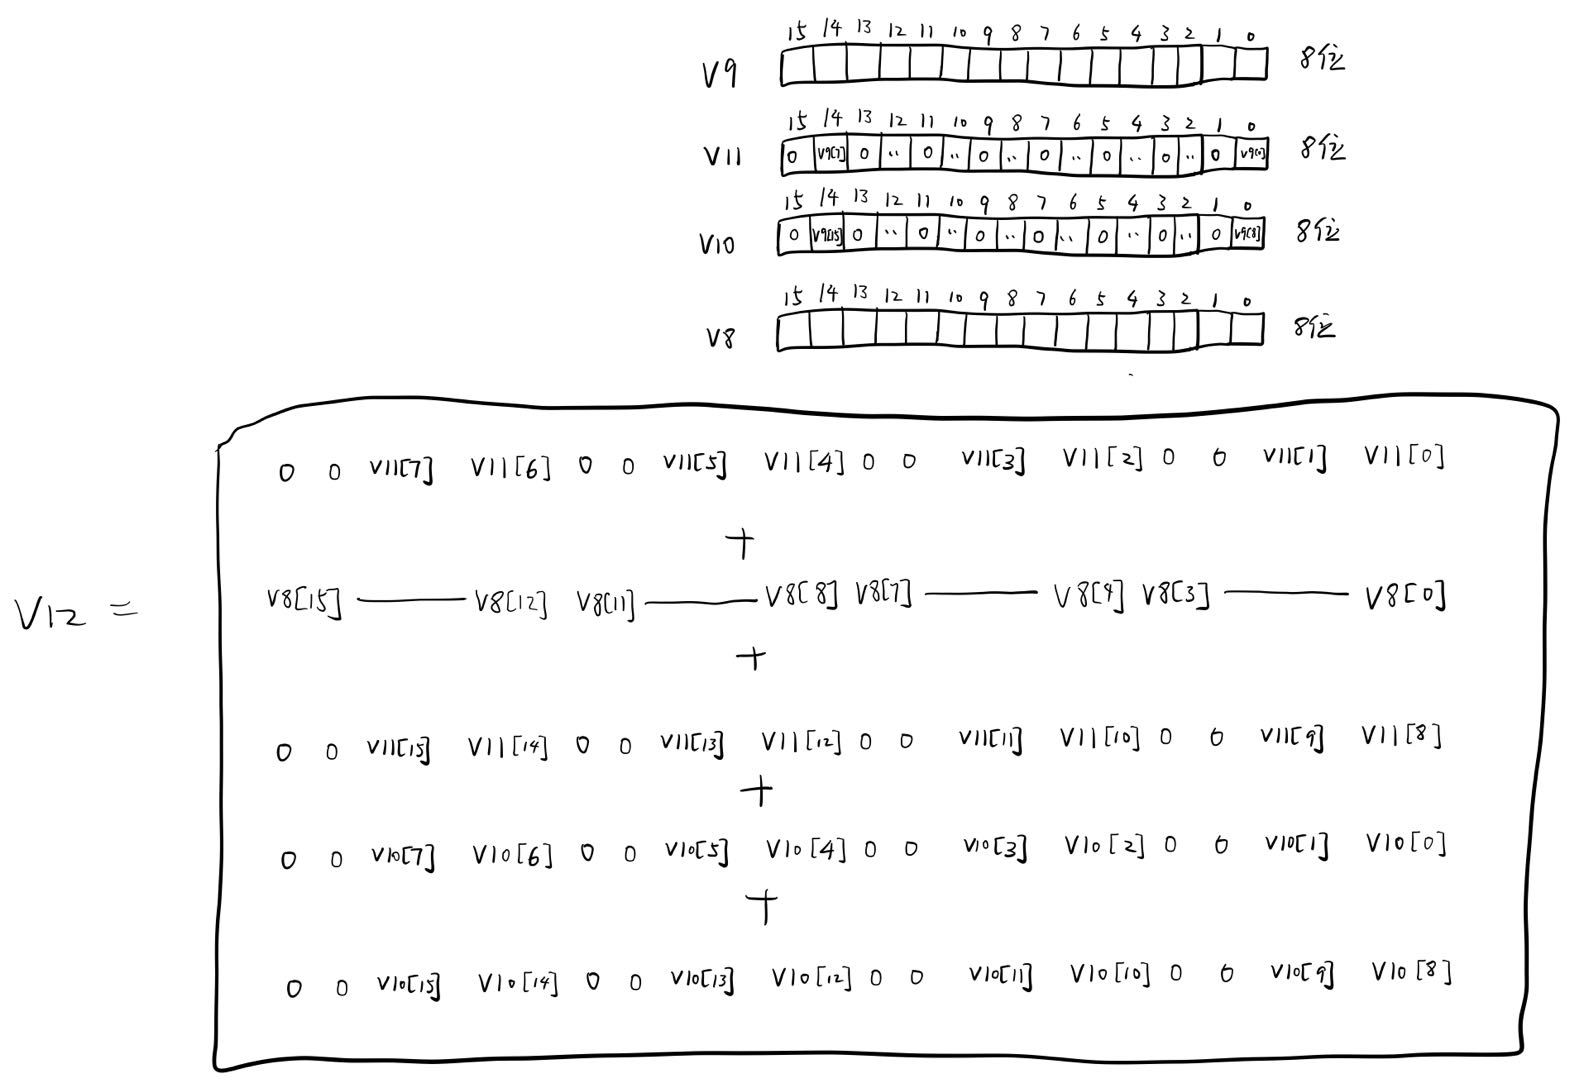 15 14 13 12 11 10 9 8 7 6 5 4 3 2 1 0
V9 8位
15 14 13 12 11 10 9 8 7 6 5 4 3 2 1 0
V11 0 V9[7] 0 .. 0 .. 0 .. 0 .. 0 .. 0 .. 0 V9[0] 8位
15 14 13 12 11 10 9 8 7 6 5 4 3 2 1 0
V10 0 V9[15] 0 .. 0 .. 0 .. 0 .. 0 .. 0 .. 0 V9[8] 8位
15 14 13 12 11 10 9 8 7 6 5 4 3 2 1 0
V8 8位
0 0 V11[7] V11[6] 0 0 V11[5] V11[4] 0 0 V11[3] V11[2] 0 0 V11[1] V11[0]
+
V12 = V8[15] — V8[12] V8[11] — V8[8] V8[7] — V8[4] V8[3] — V8[0]
+
0 0 V11[15] V11[14] 0 0 V11[13] V11[12] 0 0 V11[11] V11[10] 0 0 V11[9] V11[8]
+
0 0 V10[7] V10[6] 0 0 V10[5] V10[4] 0 0 V10[3] V10[2] 0 0 V10[1] V10[0]
+
0 0 V10[15] V10[14] 0 0 V10[13] V10[12] 0 0 V10[11] V10[10] 0 0 V10[9] V10[8]